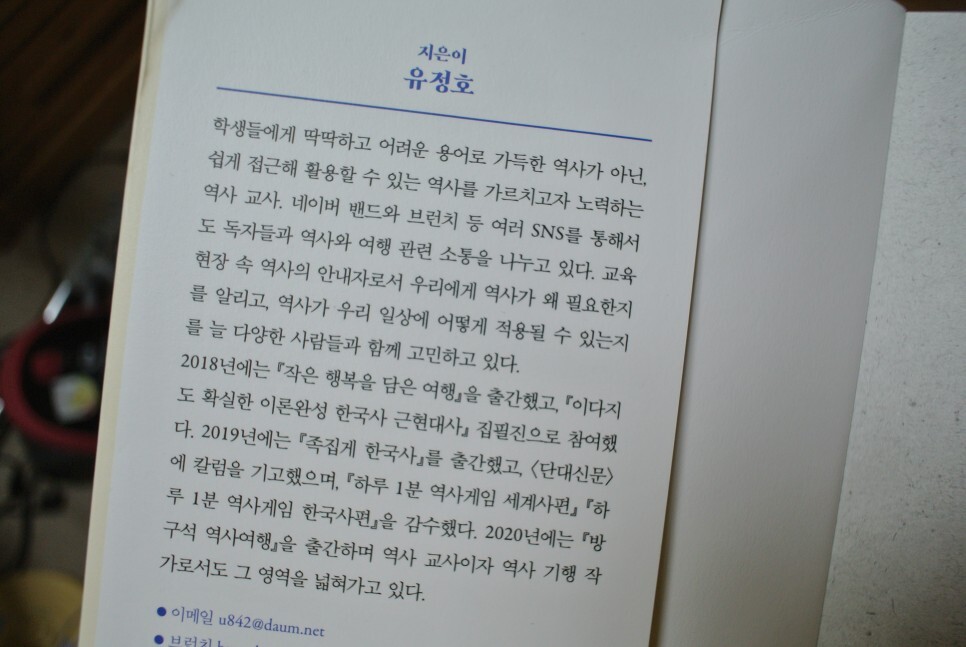 지은이
유정호
학생들에게 딱딱하고 어려운 용어로 가득한 역사가 아닌,
쉽게 접근해 활용할 수 있는 역사를 가르치고자 노력하는
역사 교사. 네이버 밴드와 브런치 등 여러 SNS를 통해서
도 독자들과 역사와 여행 관련 소통을 나누고 있다. 교육
현장 속 역사의 안내자로서 우리에게 역사가 왜 필요한지
를 알리고, 역사가 우리 일상에 어떻게 적용될 수 있는지
를 늘 다양한 사람들과 함께 고민하고 있다.
2018년에는 『작은 행복을 담은 여행』을 출간했고, 『이다지
도 확실한 이론완성 한국사 근현대사』 집필진으로 참여했
다. 2019년에는 『족집게 한국사』를 출간했고, 〈단대신문〉
에 칼럼을 기고했으며, 『하루 1분 역사게임 세계사편』 『하
루 1분 역사게임 한국사편』을 감수했다. 2020년에는 『방
구석 역사여행』을 출간하며 역사 교사이자 역사 기행 작
가로서도 그 영역을 넓혀가고 있다.
● 이메일 u842@daum.net
● 브런치